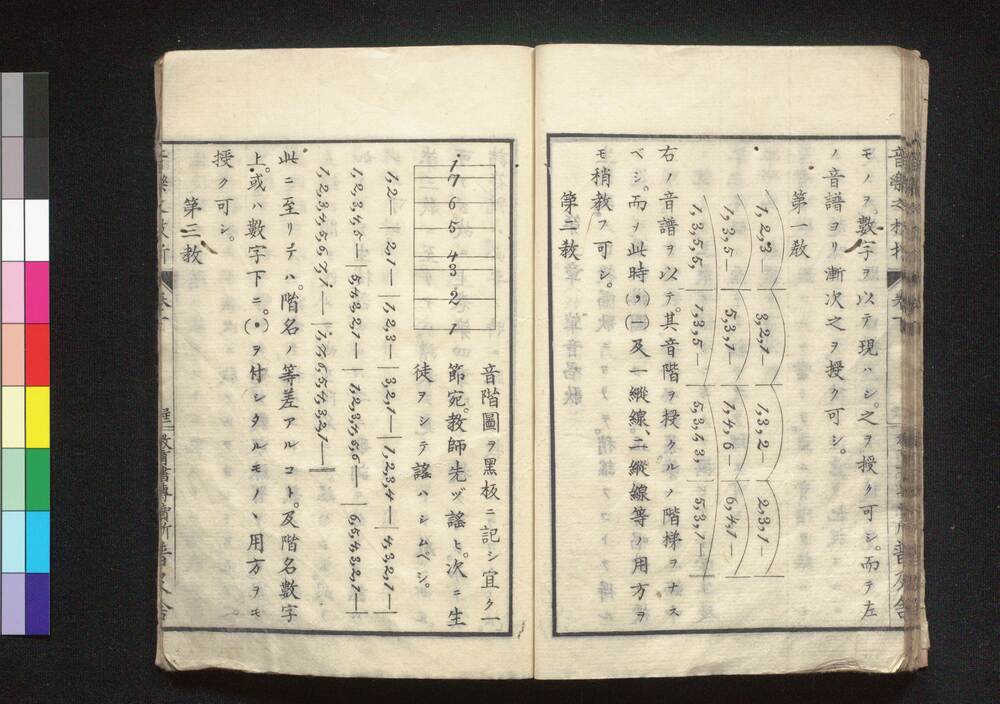 モノヲ。數字ヲ以テ現ハシ。之ヲ授ク可シ。而テ左
ノ音譜ヨリ漸次之ヲ授ク可シ。
第一敎
1, 2, 3— 3, 2, 1— 1, 3, 2— 2, 3, 1—
1, 3, 5— 5, 3, 1— 1, 4, 6— 6, 4, 1—
1, 3, 5, 5, 1, 3, 5— 5, 3, 4, 3, 5, 3, 1—
右ノ音譜ヲ以テ。其音階ヲ授クルノ階梯ヲナス
ベシ。而ヲ此時(,)(—)及一縱線、二縱線等ノ用方ヲ
モ稍敎フ可シ。
第二敎
i 7 6 5 4 3 2 1
音階圖ヲ黑板ニ記シ宜ク一
節宛。敎師先ヅ謠ヒ。次ニ生
徒ヲシテ謠ハシムベシ。
1, 2— 2, 1— 1, 2, 3— 3, 2, 1— 1, 2, 3, 4— 4, 3, 2, 1—
1, 2, 3, 4, 5— 5, 4, 3, 2, 1— 1, 2, 3, 4, 5, 6— 6, 5, 4, 3, 2, 1—
1, 2, 3, 4, 5, 6, 7, i— i, 7, 6, 5, 4, 3, 2, 1—
此ニ至リテハ。階名ノ等差アルコト。及階名數字
上。或ハ數字下ニ。(•)ヲ付シタルモノヽ用方ヲモ
授ク可シ。
第三敎